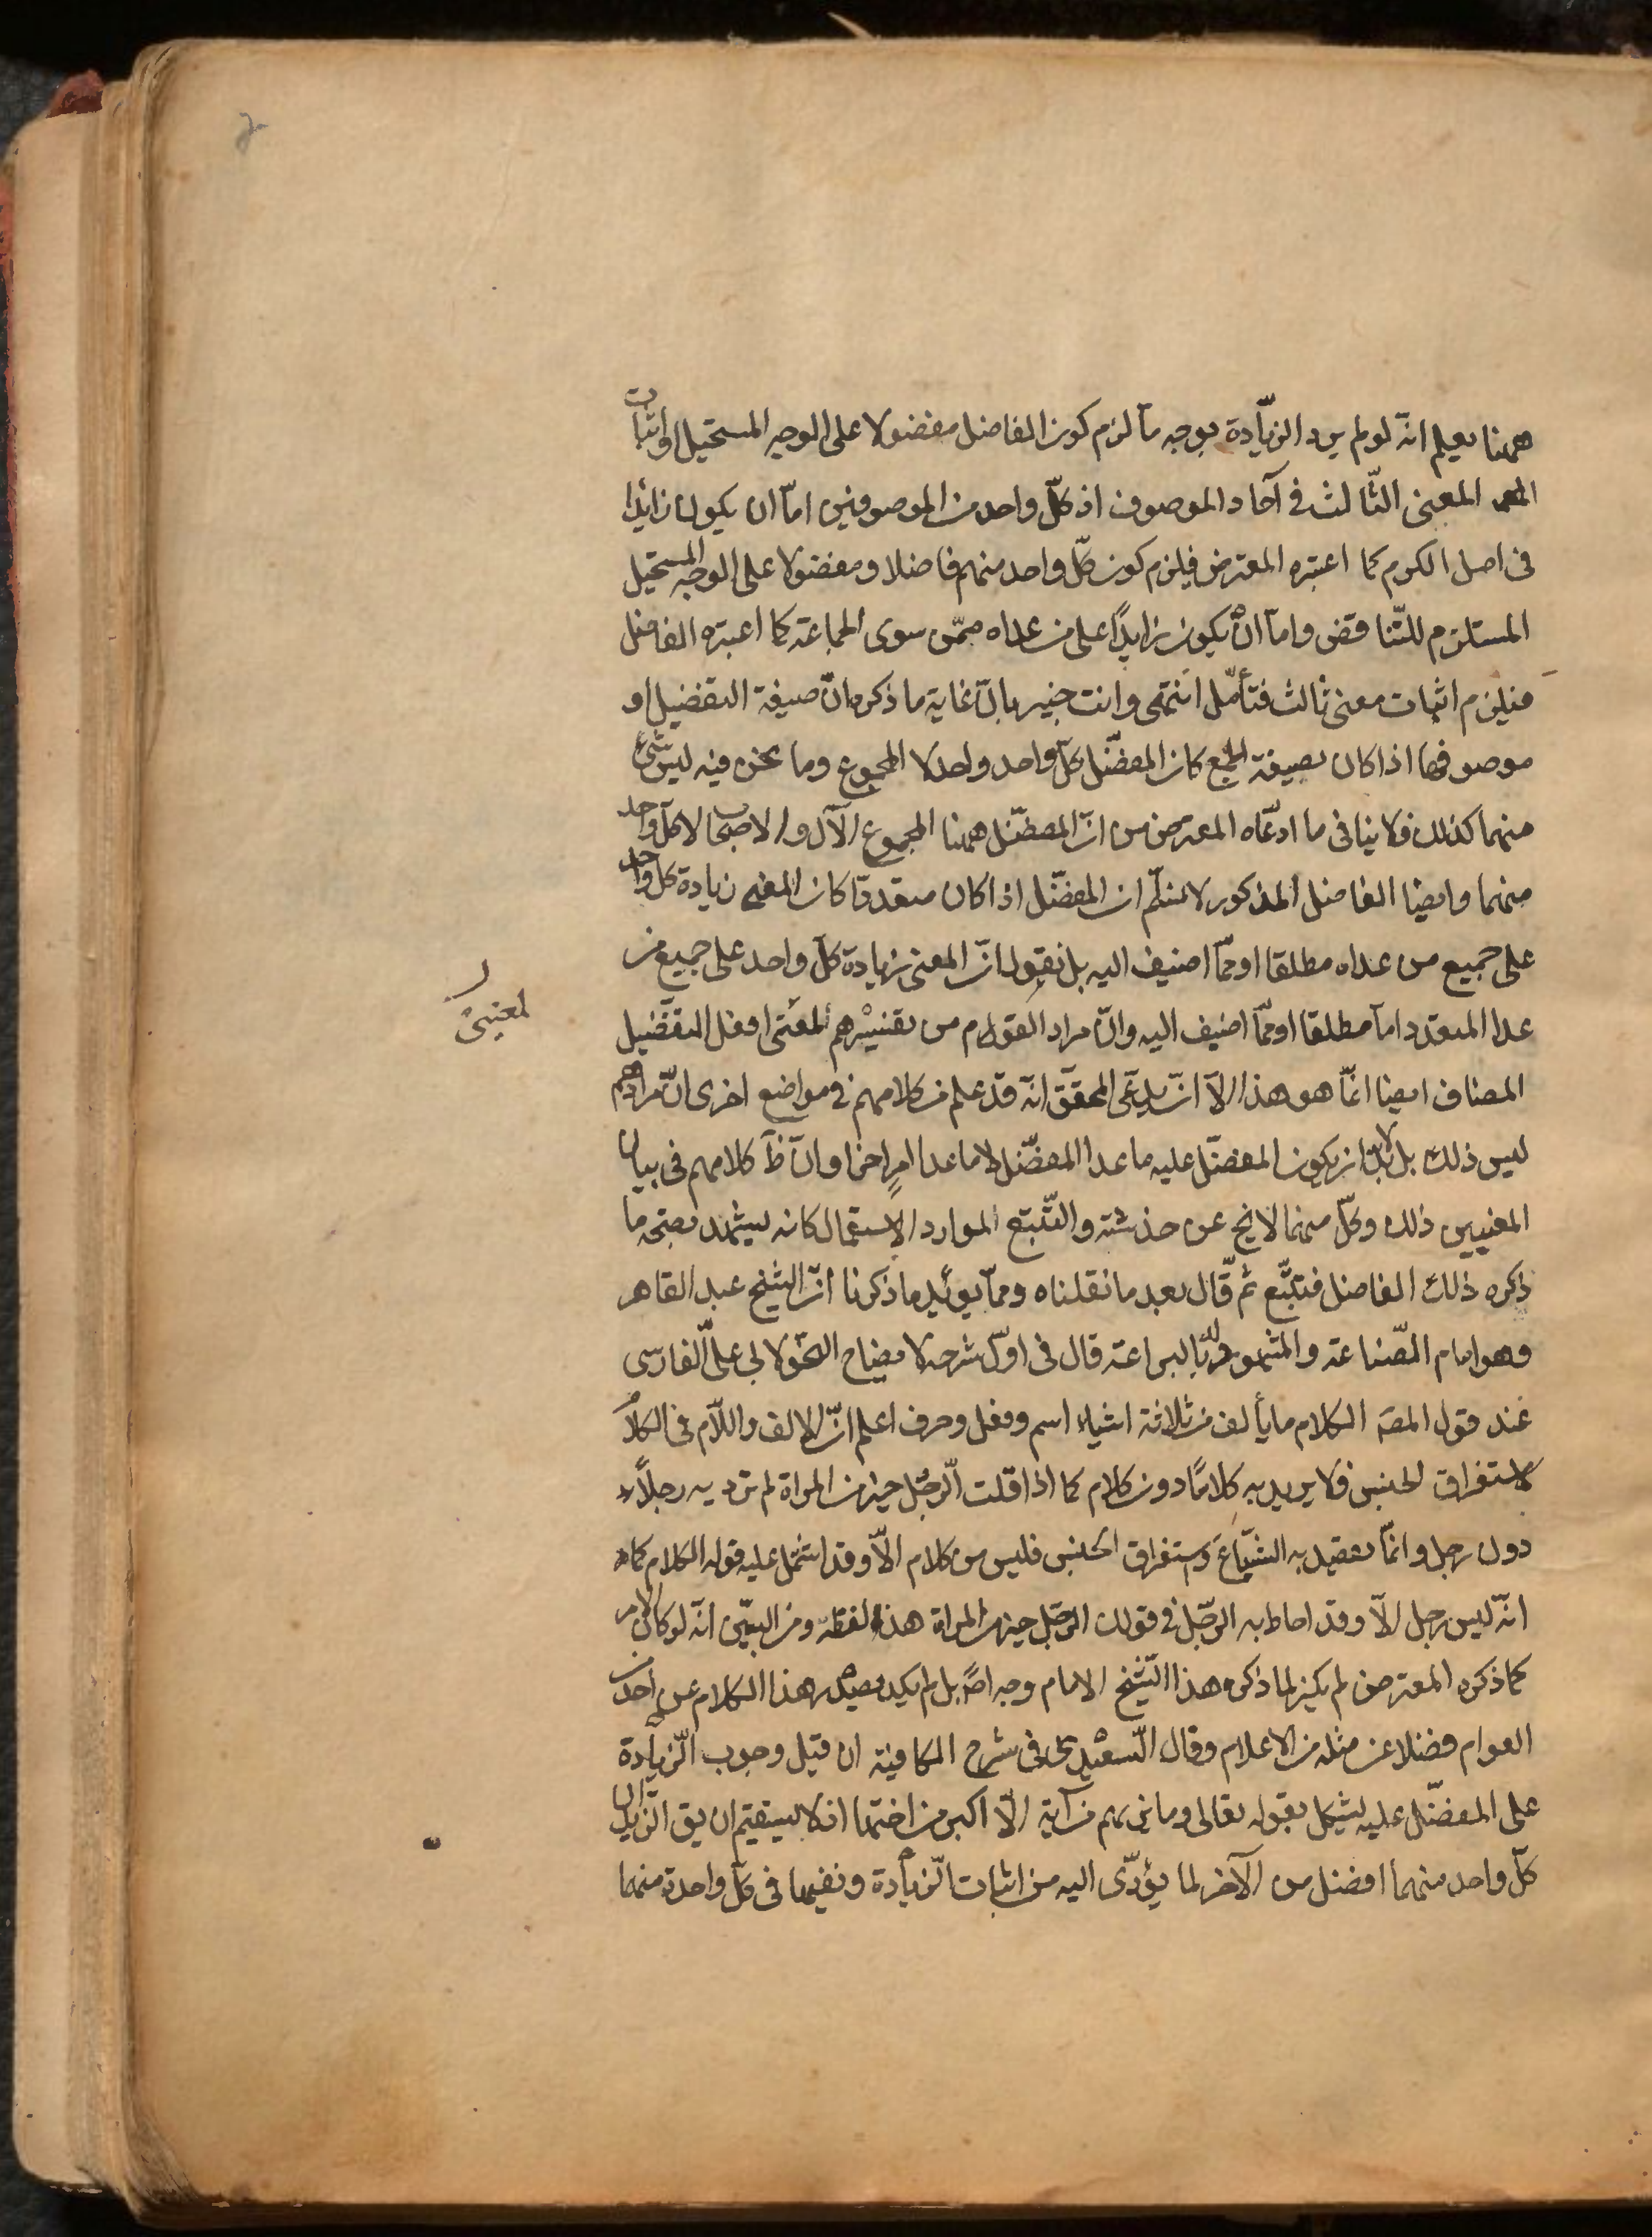 ههنا يعلم انّه لو لم يرد الزيّادة بوجه ما لزم كون الفاضل مفضولا على الوجه المستحيل او اثبات
المعنى الثّالث فى آحاد الموصوف اذ كلّ واحد من الموصوفين امّا ان يكون زائدا
فى اصل الكرم كما اعتبره المعترض فيلزم كون كلّ واحد منهم فاضلا ومفضولا على الوجه المستحيل
المستلزم للتّناقض وامّا ان يكون زايدًا على من عداه ممّن سوى الجماعة كما اعتبره الفاضل
فيلزم اثبات معنى ثالث فتأمّل انتهى وانت خبير بانّ غاية ما ذكره انّ صيغة التفضيل او
موصوفها اذا كان بصيغة الجمع كان المفضّل كلّ واحد واحد لا المجموع وما نحن فيه ليس شئ
منهما كذلك فلا ينافى ما ادّعاه المعترض من انّ المفضّل ههنا المجموع الآل والاصحاب لا كلّ واحد
منهما وايضا الفاضل المذكور لا يسلّم ان المفضّل اذا كان متعددّا كان المعنى زيادة كل واحد
على جميع من عداه مطلقا او ممّا اضيف اليه بل يقول انّ المعنى زيادة كلّ واحد على جميع من
عدا المتعدد امّا مطلقا او ممّا اضيف اليه وانّ مراد القوم من تفسيرهم لمعنى افعل التفضيل
لمعنيىْ
المضاف ايضا انّما هو هذا الّا ان يدّعى المحقّق انّه قد علم من كلامهم فى مواضع اخرى انّ مرادهم
ليس ذلك بل لابدّ ان يكون المفضّل عليه ما عدا المفضّل لا ما عدا امرٍ آخر وانّ ظ كلامهم فى بيان
المعنيين ذلك وكلّ منهما لا يخ عن خدشة والتّتبع الموارد الاستعمال كانه ليشهد بصحّة ما
ذكره ذلك الفاضل فتتبّع ثم قال بعد ما نقلناه وممّا يؤيّد ما ذكرنا انّ الشيخ عبد القاهر
وهو امام الصّناعة والمشهور له بالبراعة قال فى اوّل شرحه لايضاح النحو لابى علىّ الفارسى
عند قول المصّ الكلام ما يأتلف من ثلاثة اشياء اسم وفعل وحرف اعلم انّ الالف واللّام فى الكلام
لاستغراق الجنس فلا يريد به كلامًا دون كلام كما اذا قلت الرّجل خير من المراة لم ترد به رجلًا
دون رجل وانّما تقصد به الشّياع واستغراق الجنس فليس من كلام الّا وقد اشتمل عليه قوله الكلام كما
انّه ليس رجل الّا وقد احاط به الرّجل فى قولك الرّجل خير من المراة هذا لفظه ومن البيّن انّه لو كان الامر
كما ذكره المعترض لم يكن لما ذكره هذا الشّيخ الامام وجه اصّا بل لم يكد يصدر هذا الكلام عن احد من
العوام فضلا عن مثله من الاعلام وقال السّعيدى فى شرح الكافية ان قيل وجوب الزّيادة
على المفضّل عليه يشكل بقوله تعالى وما نريهم من آية الّا اكبر من اختها اذ لا يستقيم ان يق الزّيدان
كلّ واحد منهما افضل من الآخر لما يؤدّى اليه من اثبات الزّيادة ونفيها فى كلّ واحدة منهما